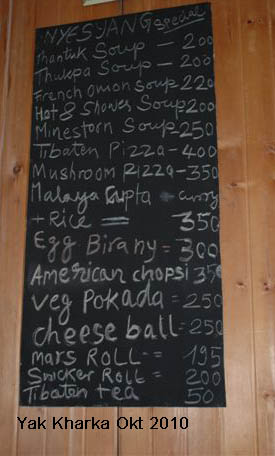 NYESYANG special
Thantuk Soup - 200
Thukpa Soup - 200
French onion Soup 220
Hot & Shower Soup 200
Minestorn Soup 250
Tibaten Pizza - 400
Mushroom Pizza - 350
Malaya Gupta + curry
+ Rice = 350
Egg Birany = 300
American chopsi 350
veg Pokada = 250
cheese ball = 250
Mars ROLL = 195
Snicker Roll = 200
Tibaten tea 50
Yak Kharka Okt 2010